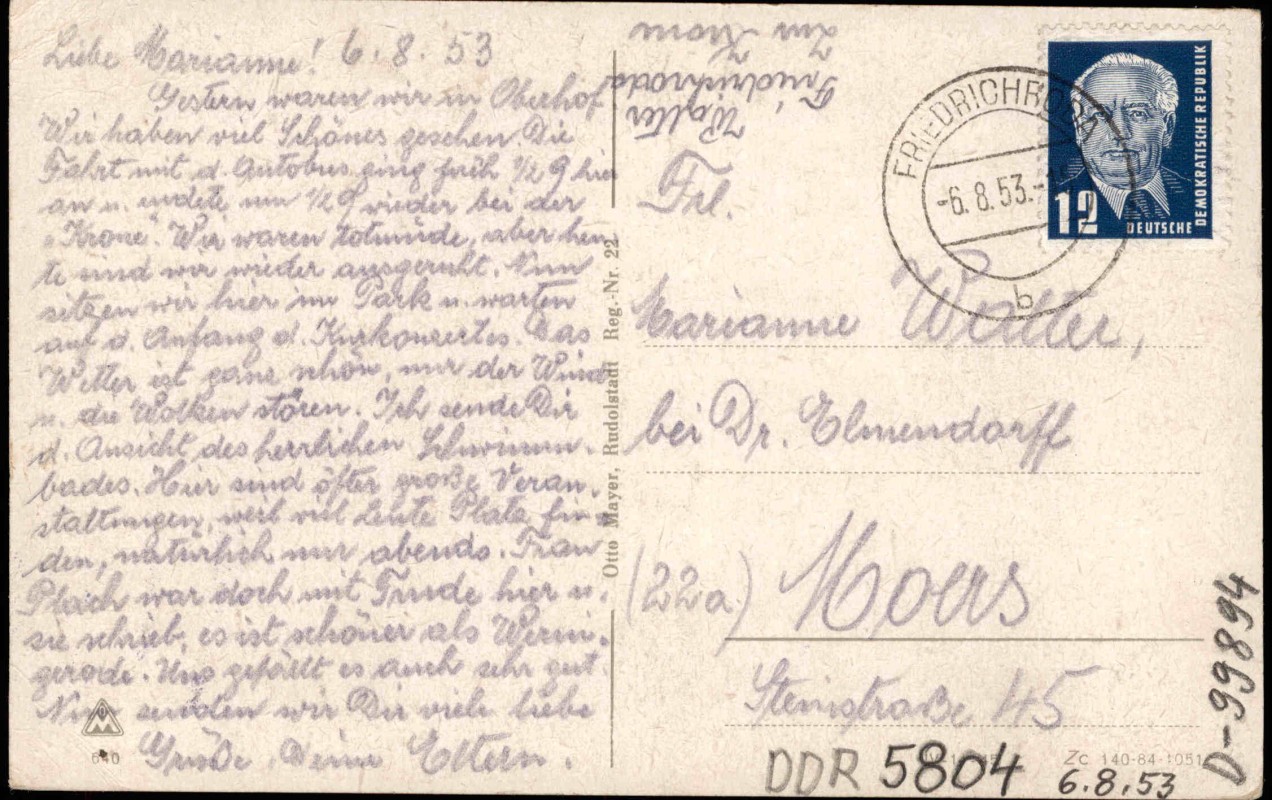 Liebe Marianne! 6.8.53
Gestern waren wir in Oberhof
Wir haben viel Schönes gesehen. Die
Fahrt mit d. Autobus ging früh 1/2 9 hier
an u. endete um 1/2 9 wieder bei der
"Krone". Wir waren totmüde, aber heu-
te sind wir wieder ausgeruht. Nun
sitzen wir hier im Park u. warten
auf d. Anfang d. Kurkonzertes. Das
Wetter ist ganz schön, nur der Wind
u. die Wolken stören. Ich sende Dir
d. Ansicht des herrlichen Schwimm-
bades. Hier sind öfter große Veran-
staltungen, weil viel Leute Platz fin-
den, natürlich nur abends. Frau
Plach war doch mit Trude hier u.
sie schrieb, es ist schöner als Werni-
gerode. Uns gefällt es auch sehr gut.
Nun senden wir Dir viele liebe
Grüße, Deine Eltern.
640
Otto Mayer, Rudolstadt Reg.-Nr. 22
Walter
Friedrichroda
Zur Krone
FRIEDRICHRODA
-6.8.53.-
b
12
DEUTSCHE
DEMOKRATISCHE REPUBLIK
Frl.
Marianne Walter,
bei Dr. Elmendorff
(22a) Moers
Steinstraße 45
Zc 140-84-1051
DDR 5804
6.8.53
D-99894